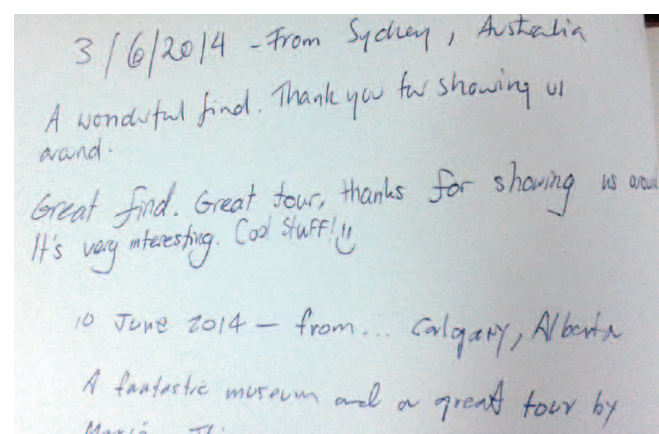 3/6/2014 - From Sydney, Australia
A wonderful find. Thank you for showing us
around.
Great find. Great tour, thanks for showing us
It's very interesting. Cool Stuff!
10 June 2014 — from... Calgary, Alberta
A fantastic museum and a great tour by